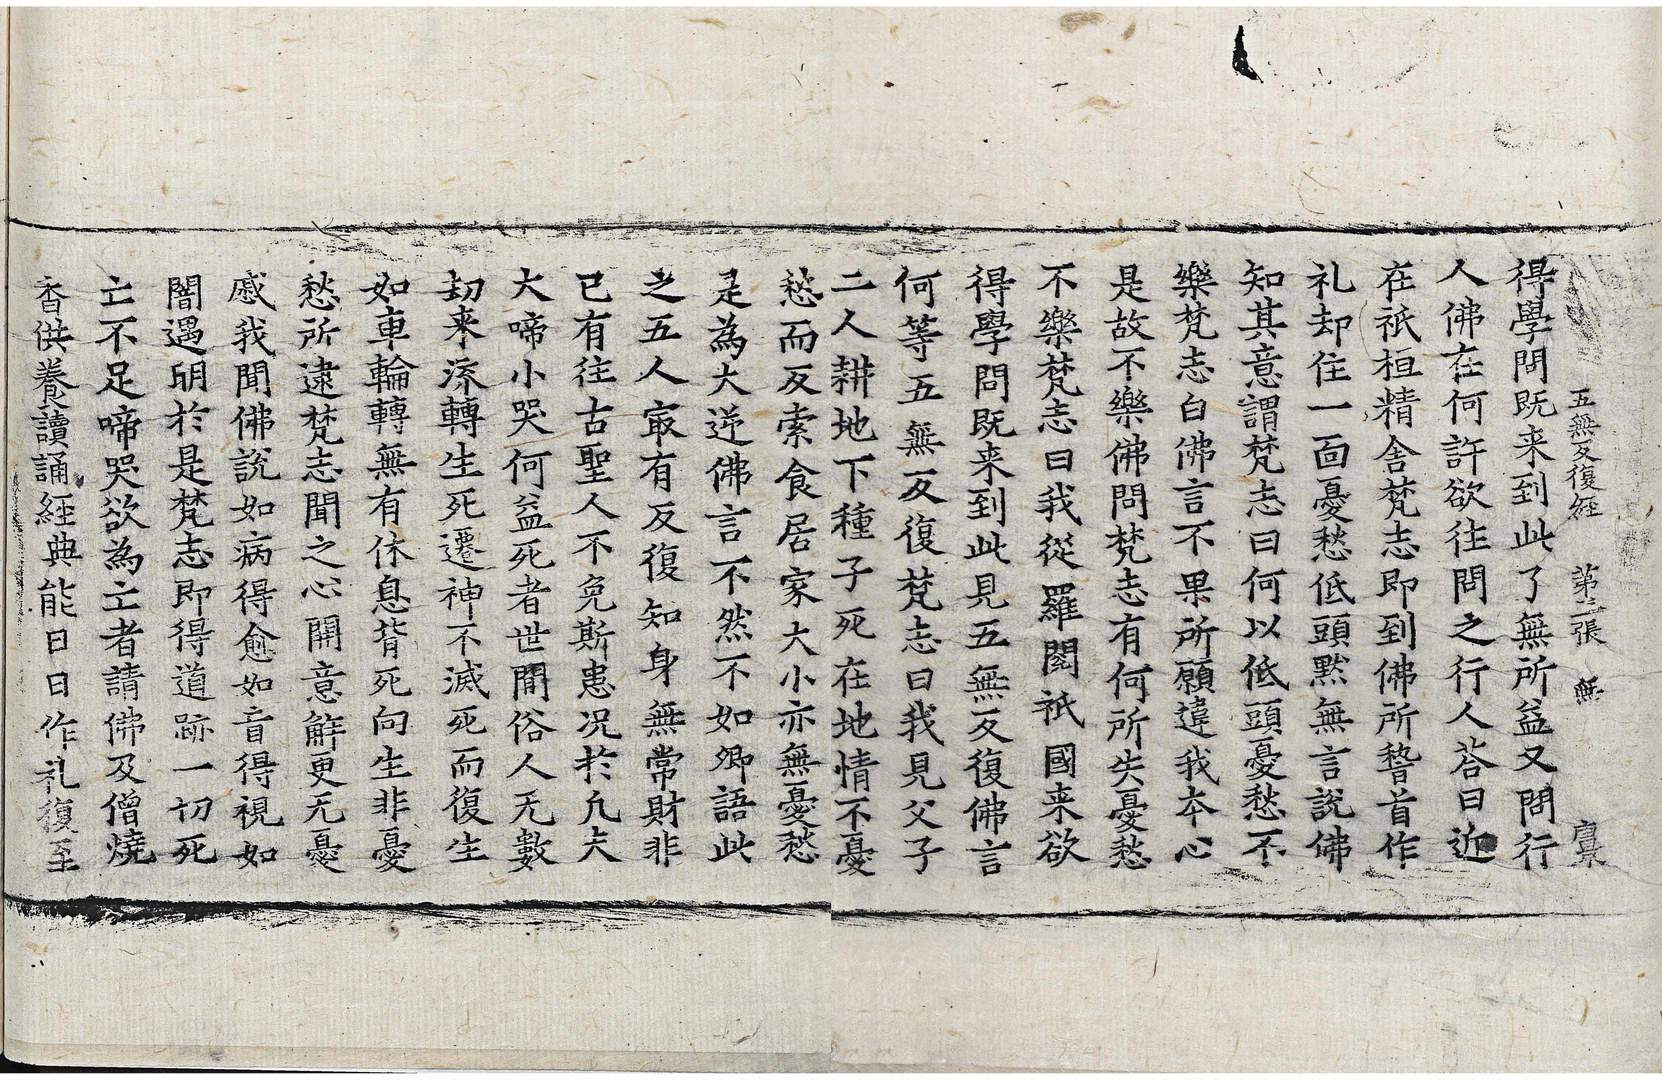 五無反復經 第三張 無
得學問既来到此了無所益又問行
人佛在何許欲往問之行人荅曰近
在祇桓精舍梵志即到佛所䭫首作
礼却住一面憂愁低頭黙無言說佛
知其意謂梵志曰何以低頭憂愁不
樂梵志白佛言不果所願違我本心
是故不樂佛問梵志有何所失憂愁
不樂梵志曰我從羅閱祇國来欲
得學問既来到此見五無反復佛言
何等五無反復梵志曰我見父子
二人耕地下種子死在地情不憂
愁而反索食居家大小亦無憂愁
是為大逆佛言不然不如卿語此
之五人㝡有反復知身無常財非
已有往古聖人不免斯患况於凢夫
大啼小哭何益死者世間俗人无數
劫来流轉生死遷神不滅死而復生
如車輪轉無有休息背死向生非憂
愁所逮梵志聞之心開意解更无憂
慼我聞佛說如病得愈如盲得視如
闇遇明於是梵志即得道跡一切死
亡不足啼哭欲為亡者請佛及僧燒
香供養讀誦經典能日日作礼復至